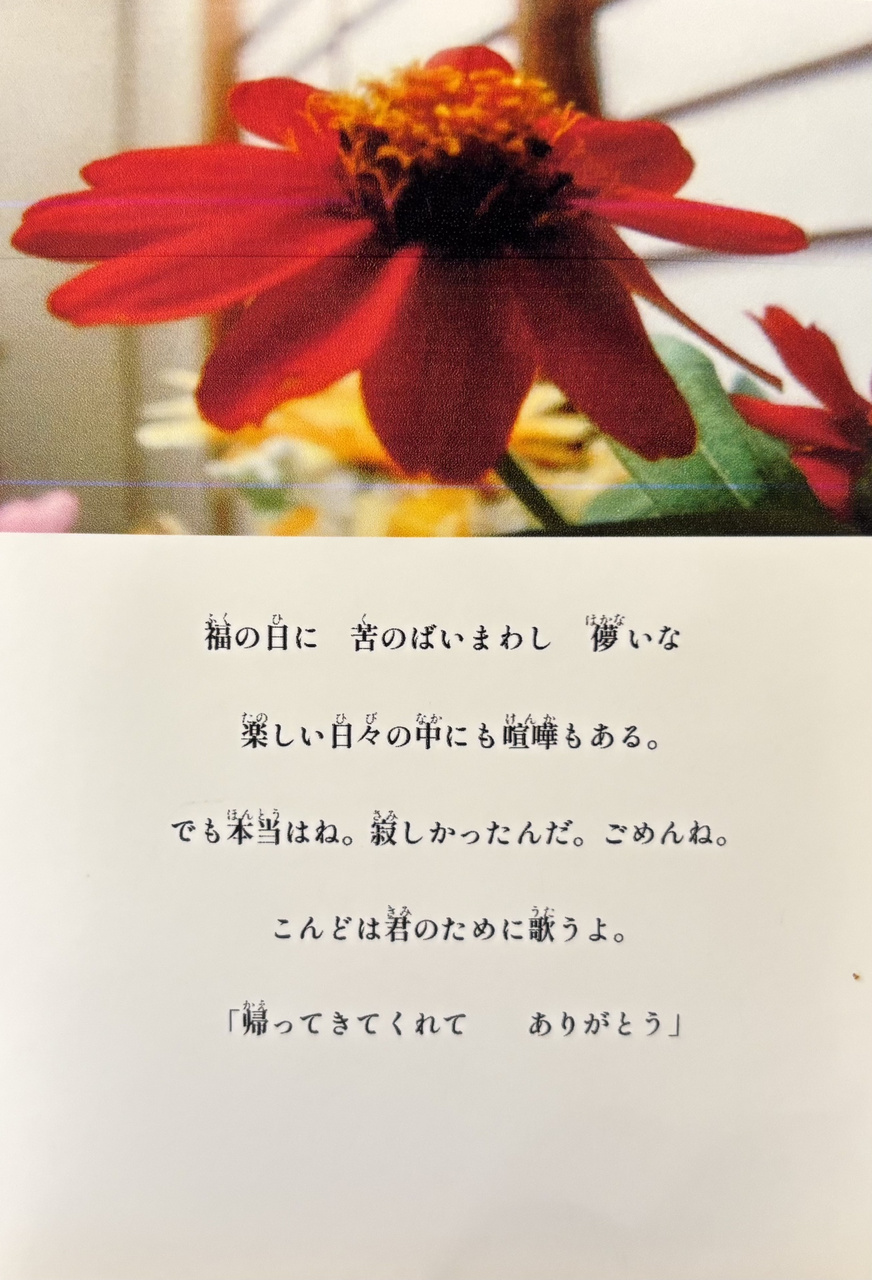 福の日に　苦のばいまわし　儚いな
楽しい日々の中にも喧嘩もある。
でも本当はね。寂しかったんだ。ごめんね。
こんどは君のために歌うよ。
「帰ってきてくれて　　ありがとう」